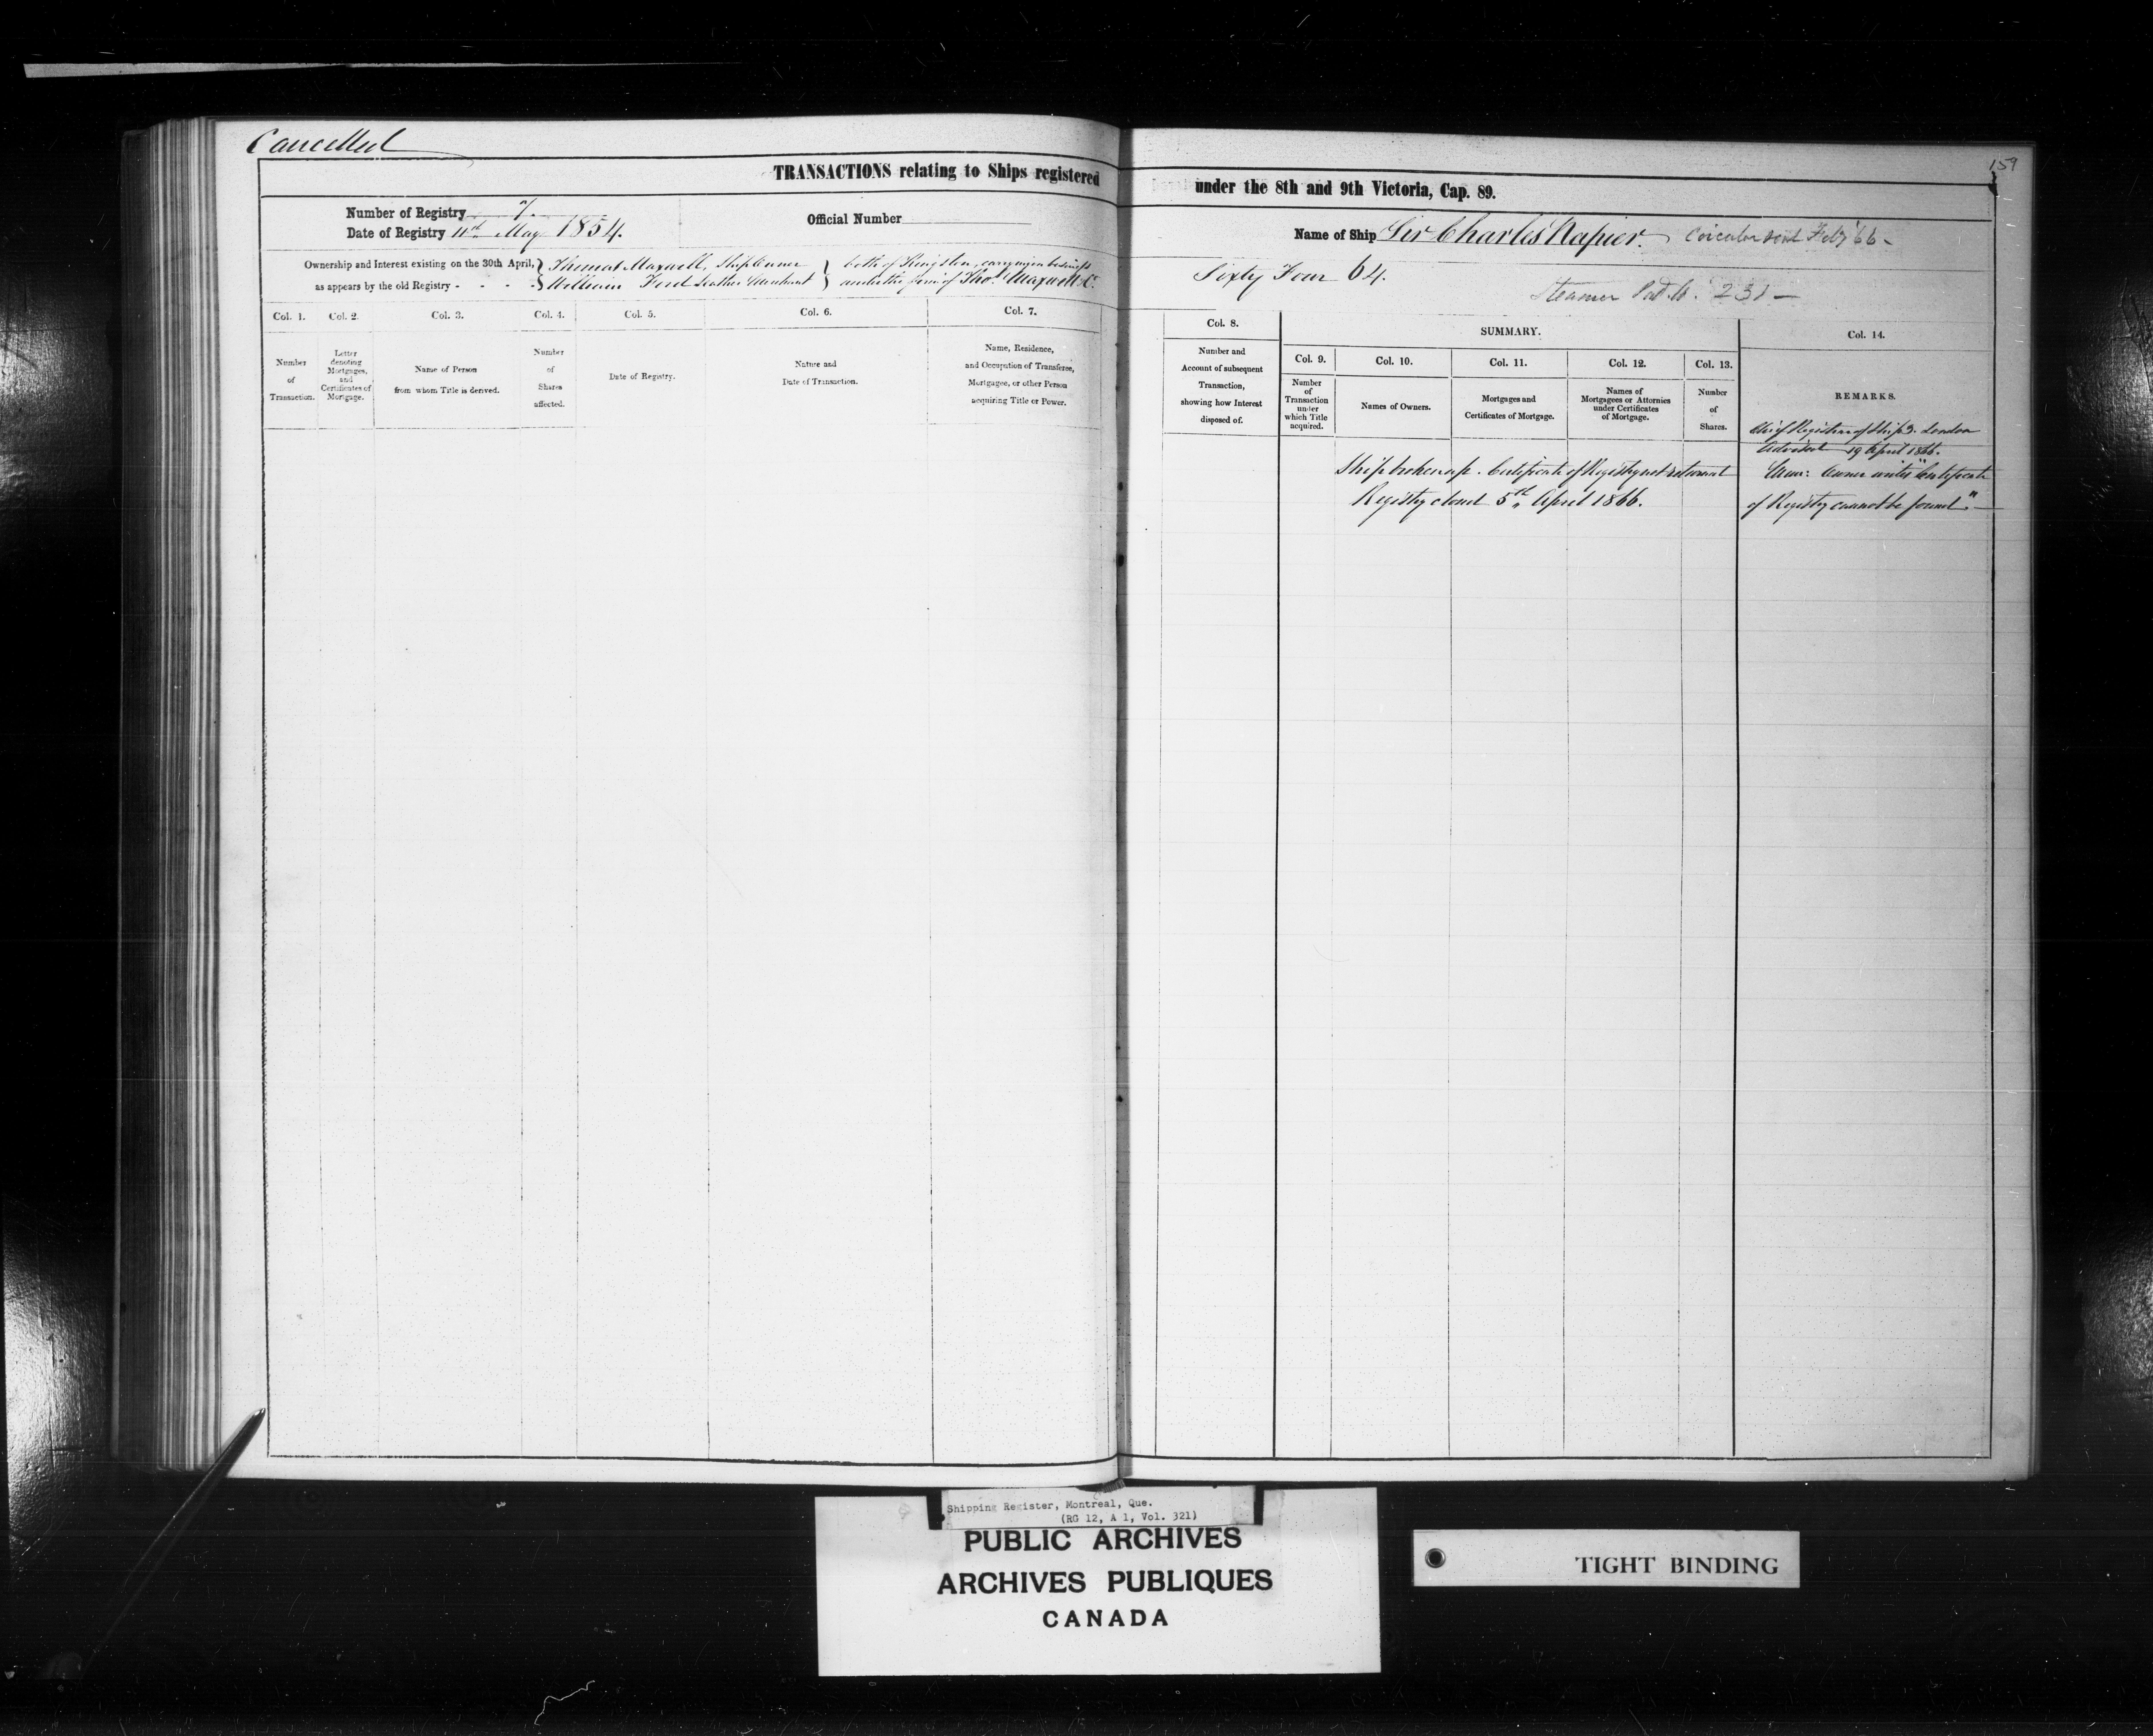 Cancelled
159
TRANSACTIONS relating to Ships registered under the 8th and 9th Victoria, Cap. 89.
Number of Registry 7.
Date of Registry 11th May 1854.
Official Number
Name of Ship Sir Charles Napier. Circular sent Feby '66 -
Ownership and Interest existing on the 30th April,
as appears by the old Registry - - - -
Thomas Maxwell, Ship Owner
William Ford Leather Merchant
both of Kingston, carrying on business
under the firm of Thos. Maxwell & Co.
Sixty Four 64.
Steamer 231 -
Col. 1.
Number
of
Transaction.
Col. 2.
Letter
denoting
Mortgages,
and
Certificates of
Mortgage.
Col. 3.
Name of Person
from whom Title is derived.
Col. 4.
Number
of
Shares
affected.
Col. 5.
Date of Registry.
Col. 6.
Nature and
Date of Transaction.
Col. 7.
Name, Residence,
and Occupation of Transferee,
Mortgagee, or other Person
acquiring Title or Power.
Col. 8.
Number and
Account of subsequent
Transaction,
showing how Interest
disposed of.
SUMMARY.
Col. 9.
Number
of
Transaction
under
which Title
acquired.
Col. 10.
Names of Owners.
Col. 11.
Mortgages and
Certificates of Mortgage.
Col. 12.
Names of
Mortgagees or Attornies
under Certificates
of Mortgage.
Col. 13.
Number
of
Shares.
Col. 14.
REMARKS.
Ship broken up. Certificate of Registry not returned
Registry closed 5th April 1866.
Chief Registrar of Ships. London
Advised 19 April 1866.
Mem: Owner writes "Certificate
of Registry cannot be found."
Shipping Register, Montreal, Que.
(RG 12, A 1, Vol. 321)
PUBLIC ARCHIVES
ARCHIVES PUBLIQUES
CANADA
TIGHT BINDING